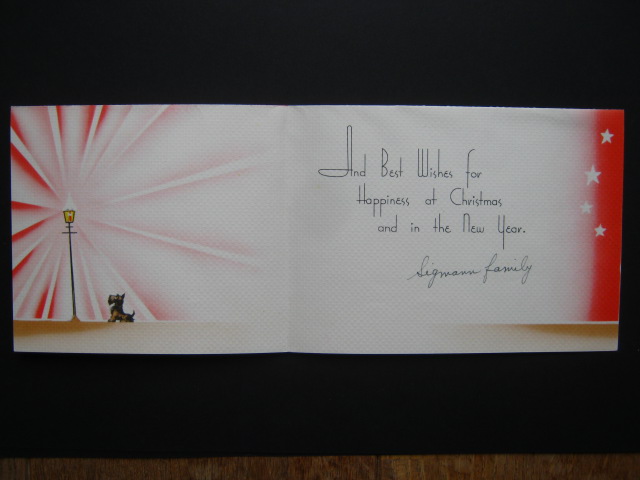 And Best Wishes for
Happiness at Christmas
and in the New Year.
Sigmann family